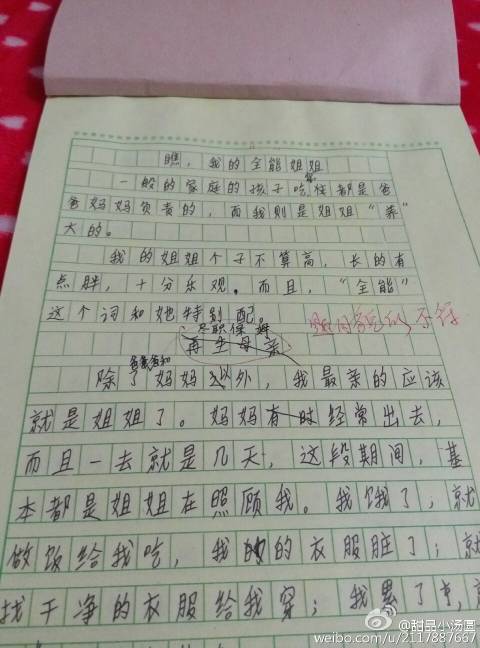 瞧，我的全能姐姐
一般的家庭的孩子吃住都是爸
爸妈妈负责的，而我则是姐姐“养”
大的。
我的姐姐个子不算高，长的有
点胖，十分乐观。而且，“全能”
这个词和她特别配。
尽职保姆
再生母亲
除了爸爸和妈妈以外，我最亲的应该
就是姐姐了。妈妈有时经常出去，
而且一去就是几天，这段期间，基
本都是姐姐在照顾我。我饿了，就
做饭给我吃，我的衣服脏了；就
找干净的衣服给我穿；我累了，
@甜品小汤圆
weibo.com/u/2117887667